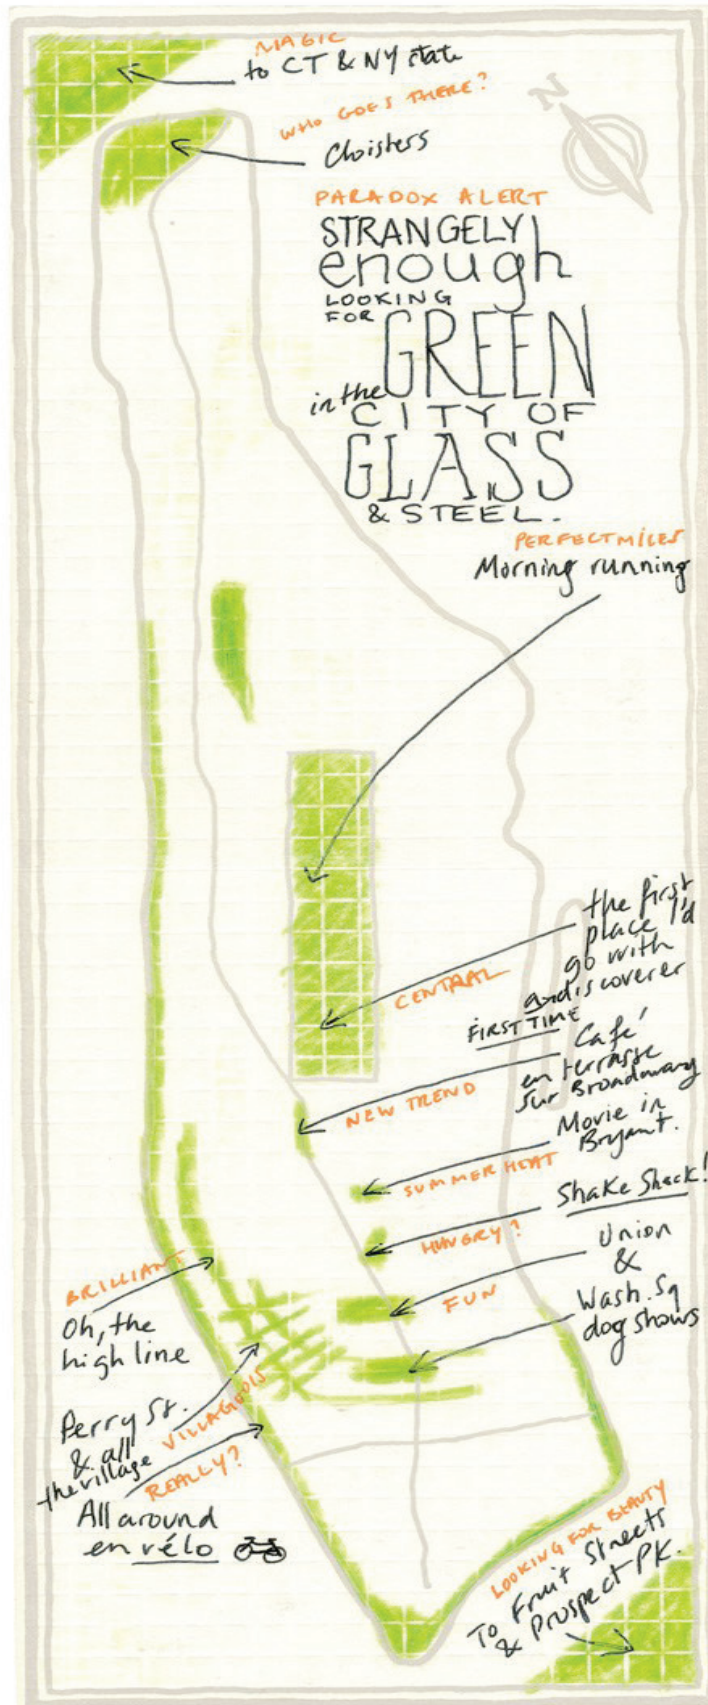 MAGIC
to CT & NY state
WHO GOES THERE?
Cloisters
N
PARADOX ALERT
STRANGELY
enough
LOOKING
FOR GREEN
in the
CITY OF
GLASS
& STEEL.
PERFECT MILES
Morning running
the first
place I'd
go with
a discoverer
FIRST TIME
CENTRAL
Café
en terrasse
sur Broadway
NEW TREND
Movie in
Bryant.
SUMMER HEAT
Shake Shack!
HUNGRY?
Union
&
FUN
Wash. Sq
dog shows
BRILLIANT
Oh, the
high line
Perry St.
& all
the village
VILLAGEOIS
REALLY?
All around
en vélo
LOOKING FOR BEAUTY
To Fruit Streets
& Prospect PK.